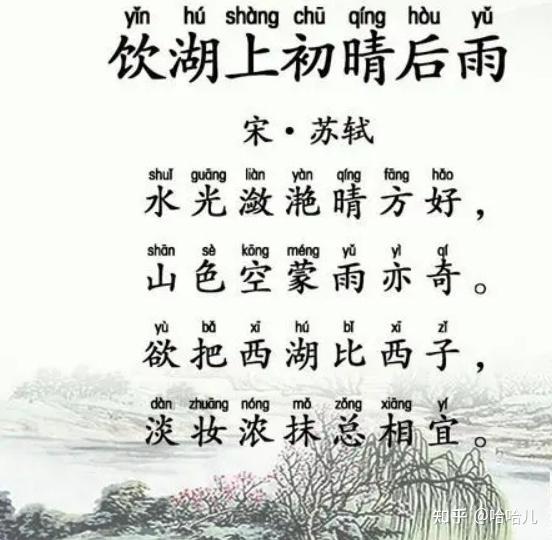 yǐn hú shàng chū qíng hòu yǔ
饮湖上初晴后雨
宋·苏轼
shuǐ guāng liàn yàn qíng fāng hǎo
水光潋滟晴方好，
shān sè kōng méng yǔ yì qí
山色空蒙雨亦奇。
yù bǎ xī hú bǐ xī zǐ
欲把西湖比西子，
dàn zhuāng nóng mǒ zǒng xiāng yí
淡妆浓抹总相宜。
知乎 @哈哈儿